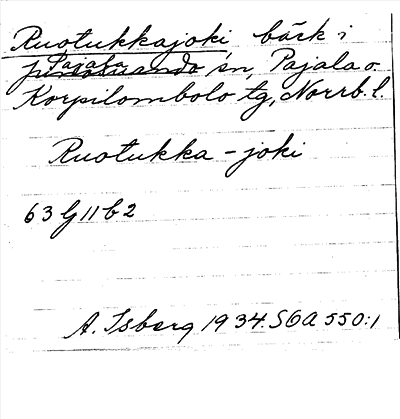 Ruotukkajoki, bäck i
Pajala
Junosuando sn, Pajala o.
Korpilombolo tg, Norrb. l.
Ruotukka-joki
63 G 11 b 2
A. Isberg 1934. SOA 550:1